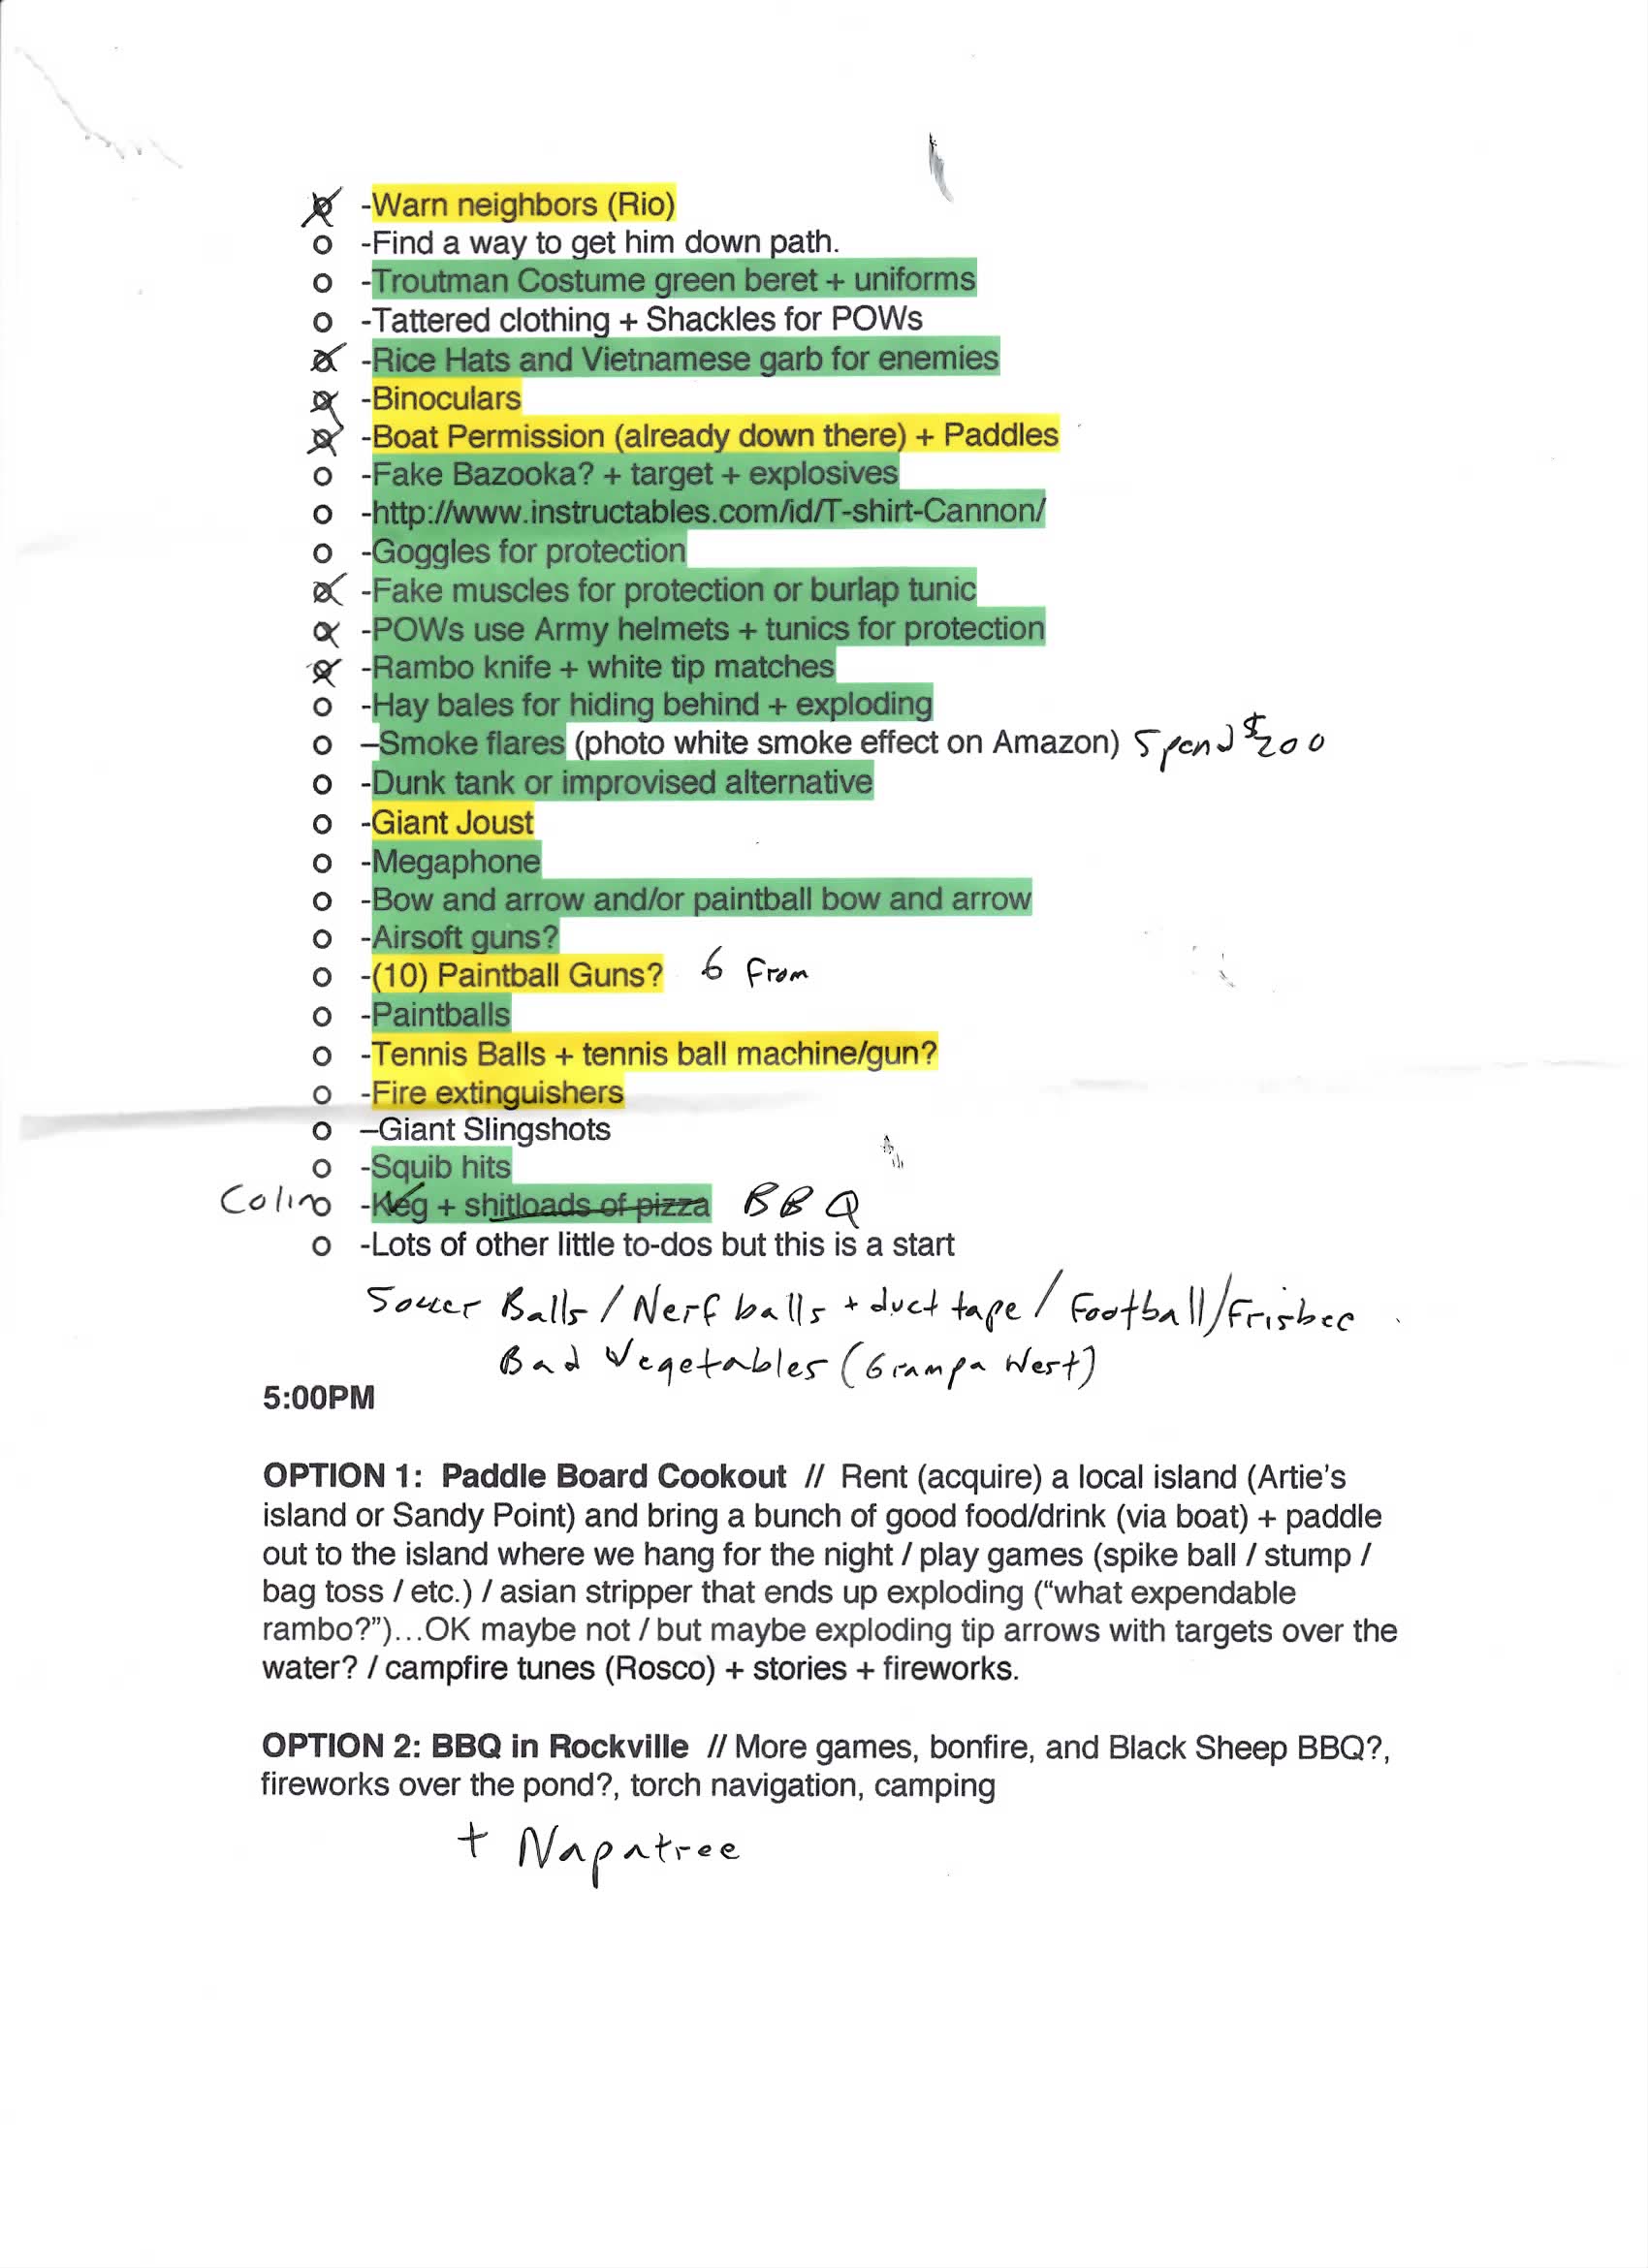 o -Warn neighbors (Rio)
o -Find a way to get him down path.
o -Troutman Costume green beret + uniforms
o -Tattered clothing + Shackles for POWs
o -Rice Hats and Vietnamese garb for enemies
o -Binoculars
o -Boat Permission (already down there) + Paddles
o -Fake Bazooka? + target + explosives
o -http://www.instructables.com/id/T-shirt-Cannon/
o -Goggles for protection
o -Fake muscles for protection or burlap tunic
o -POWs use Army helmets + tunics for protection
o -Rambo knife + white tip matches
o -Hay bales for hiding behind + exploding
o –Smoke flares (photo white smoke effect on Amazon) Spend $200
o -Dunk tank or improvised alternative
o -Giant Joust
o -Megaphone
o -Bow and arrow and/or paintball bow and arrow
o -Airsoft guns?
o -(10) Paintball Guns? 6 From
o -Paintballs
o -Tennis Balls + tennis ball machine/gun?
o -Fire extinguishers
o –Giant Slingshots
o -Squib hits
Colin o -Keg + shitloads of pizza BBQ
o -Lots of other little to-dos but this is a start
Soccer Balls / Nerf balls + duct tape / Football / Frisbee
Bad Vegetables (Grampa West)
5:00PM
OPTION 1: Paddle Board Cookout // Rent (acquire) a local island (Artie's
island or Sandy Point) and bring a bunch of good food/drink (via boat) + paddle
out to the island where we hang for the night / play games (spike ball / stump /
bag toss / etc.) / asian stripper that ends up exploding (“what expendable
rambo?”)…OK maybe not / but maybe exploding tip arrows with targets over the
water? / campfire tunes (Rosco) + stories + fireworks.
OPTION 2: BBQ in Rockville // More games, bonfire, and Black Sheep BBQ?,
fireworks over the pond?, torch navigation, camping
+ Napatree